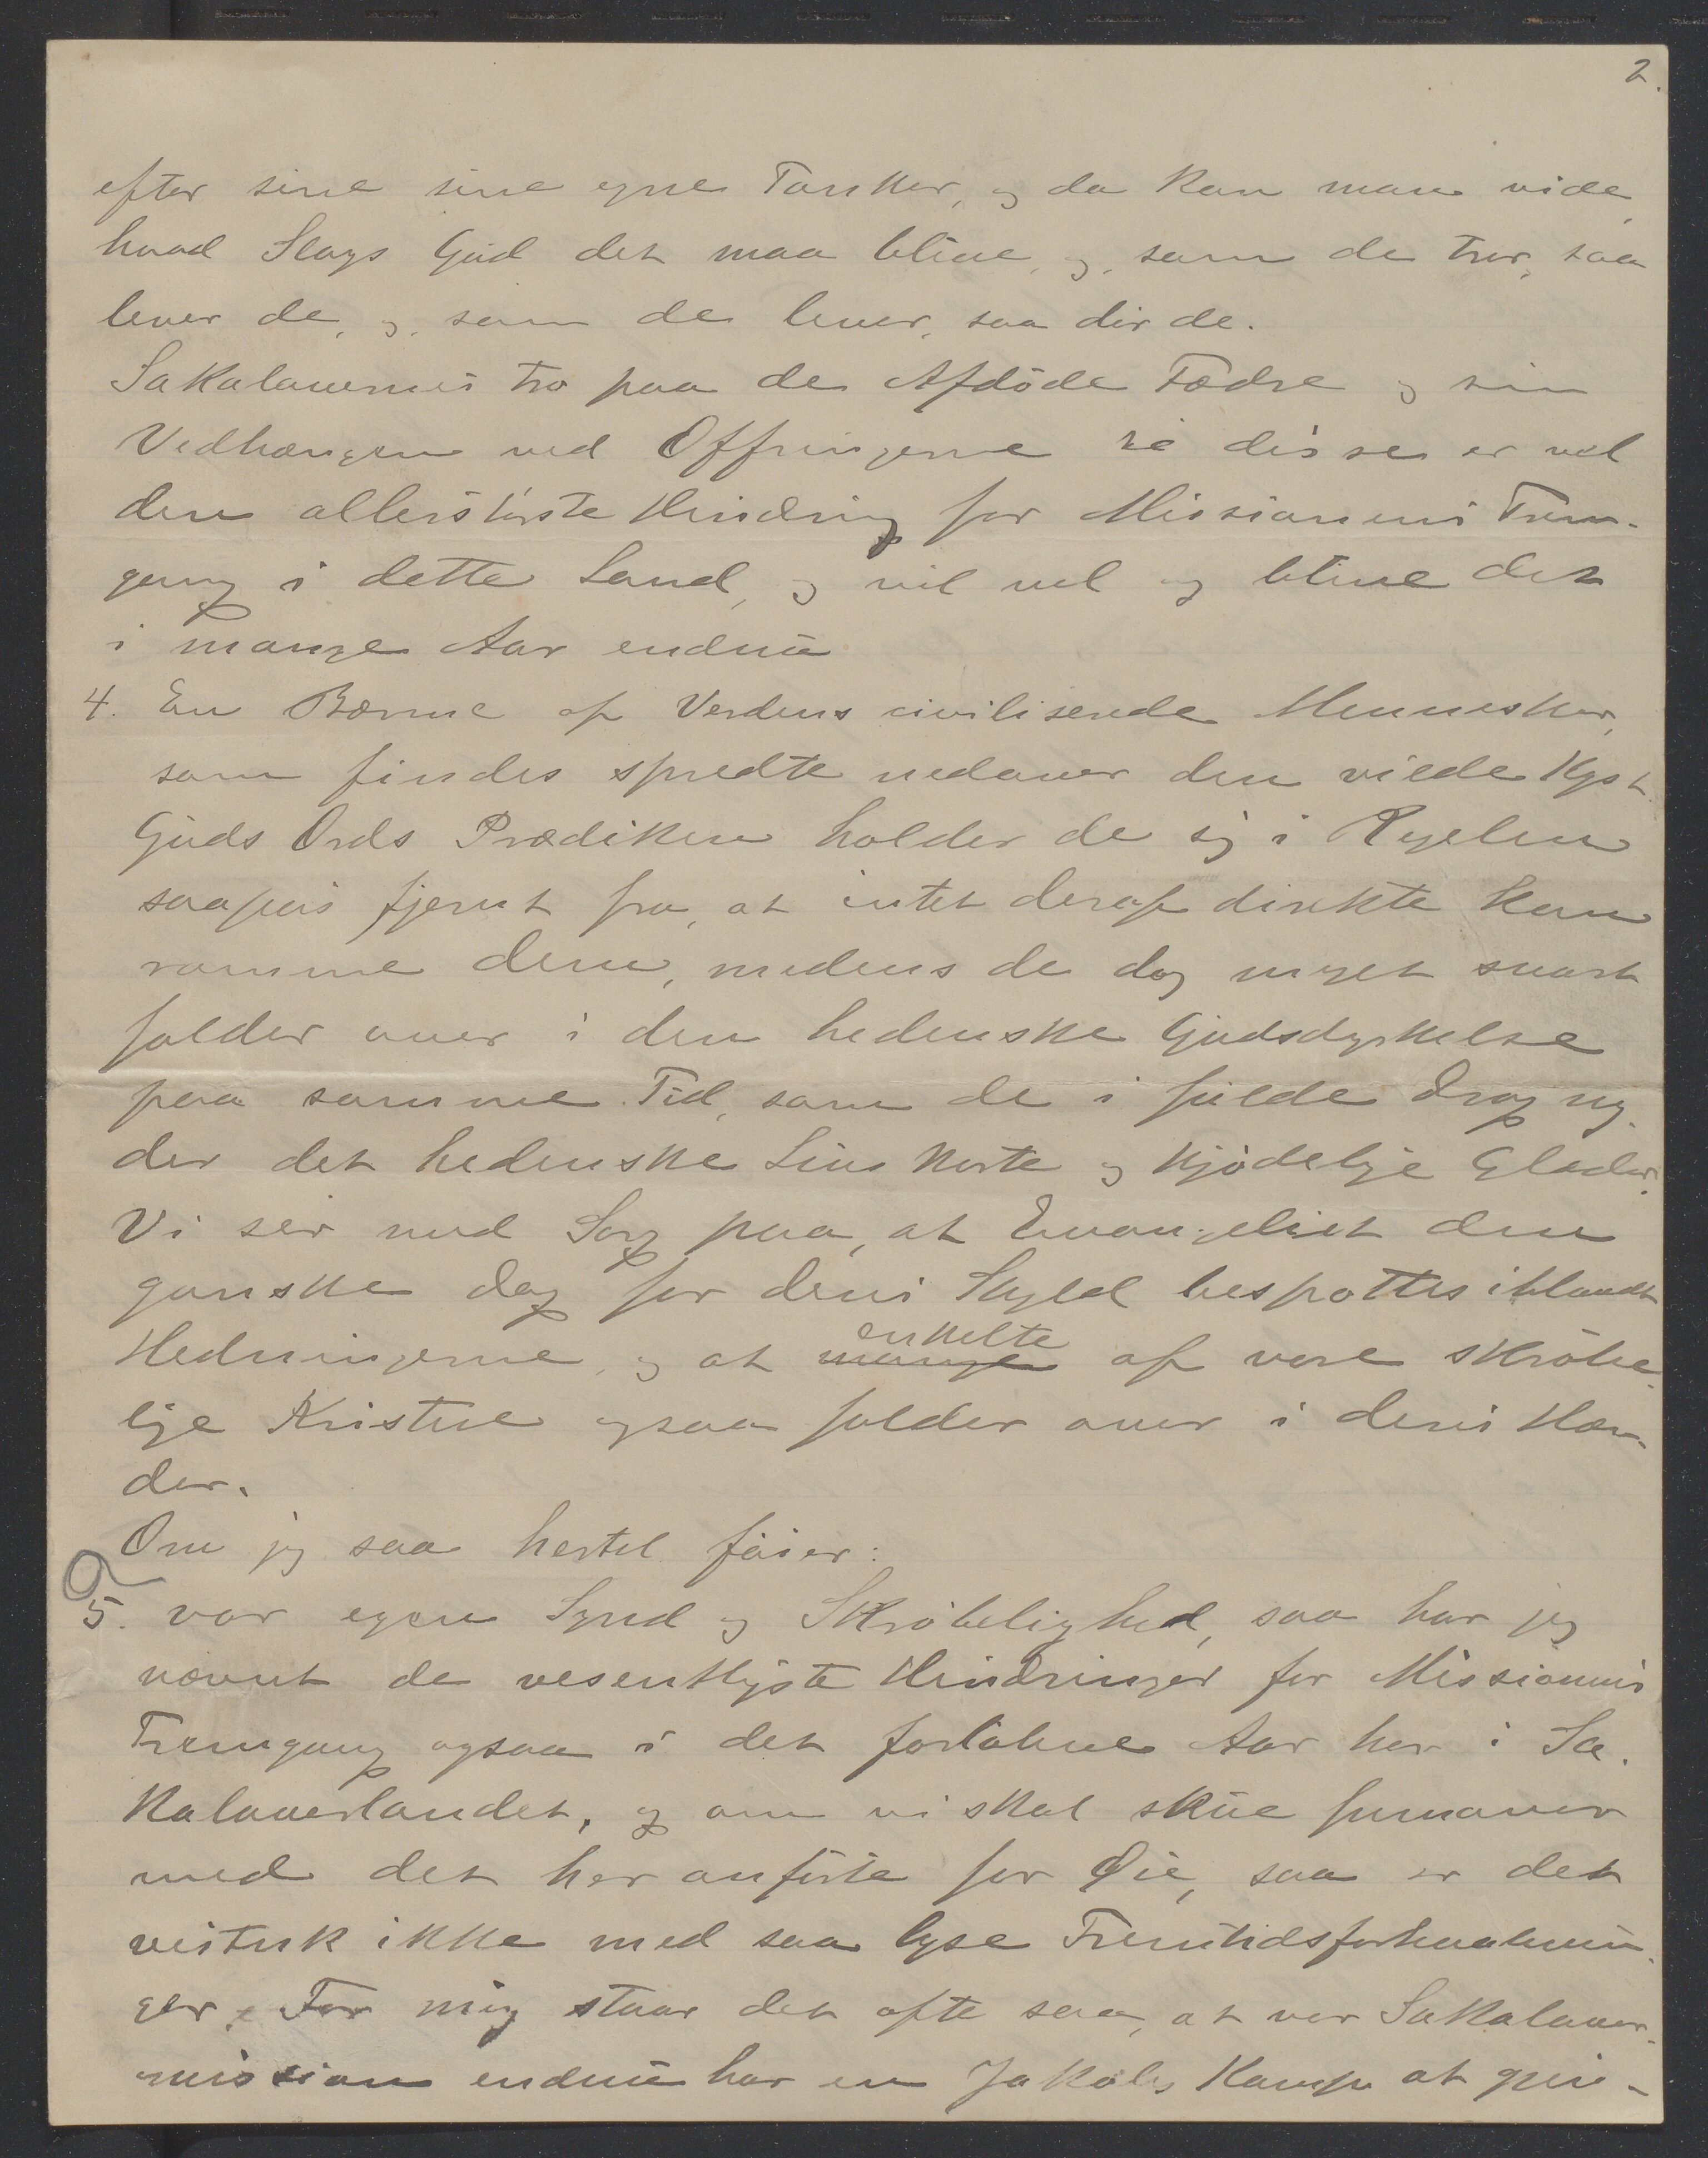 2.
efter sine sine egne Tanker, og da kan man vide,
hvad Slags Gud det maa blive, og, som de tror, saa
lever de, og, som de lever, saa dör de.
Sakalavernes tro paa de Afdöde Fædre og sin
Vedhængen ved Offringerne til disse er vel
den allerstörste Hindring for Missionens Frem-
gang i dette Land, og vil vel og blive det
i mange Aar endnu
4. En Bærme af Verdens civiliserede Mennesker,
som findes spredte nedover den vilde Kyst.
Guds Ords Prædiken holder de sig i Regelen
saapas fjernt fra, at intet deraf direkte kan
ramme dem, medens de dog meget snart
falder over i den hedenske Gudsdyrkelse
paa samme Tid, som de i fulde Drag ny-
der det hedenske Livs korte og kjödelige Glæder.
Vi ser med Sorg paa, at Evangeliet den
ganske Dag for deres Skyld bespottes iblandt
Hedningerne, og at mange enkelte af vore skröbe-
lige Kristne ogsaa falder over i deres Hæn-
der.
Om jeg saa hertil föier:
5. vor egen Synd og Skröbelighed, saa har jeg
nævnt de vesentligste Hindringer for Missionens
Fremgang ogsaa i det forlöbne Aar her i Sa-
kalaverlandet, og om vi skal skue fremover
med det her anförte for Öie, saa er det
vistnok ikke med saa lyse Fremtidsforhaabnin-
ger. For mig staar det ofte saa, at vor Sakalaver-
mission endnu har en Jakobs Kamp at gjen-